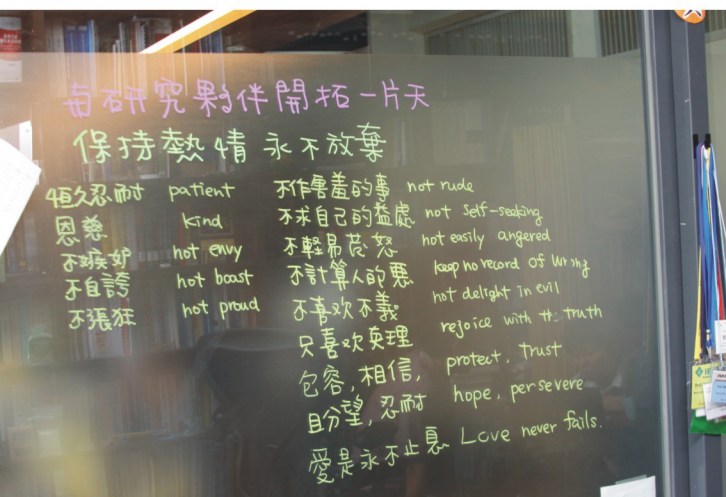 與研究夥伴開拓一片天
保持熱情 永不放棄
恒久忍耐 patient
恩慈 kind
不嫉妒 not envy
不自誇 not boast
不張狂 not proud
不作害羞的事 not rude
不求自己的益處 not self-seeking
不輕易發怒 not easily angered
不計算人的惡 keep no record of wrong
不喜欢不義 not delight in evil
只喜欢真理 rejoice with the truth
包容,相信, protect, Trust
盼望,忍耐 hope, persevere
愛是永不止息 Love never fails.